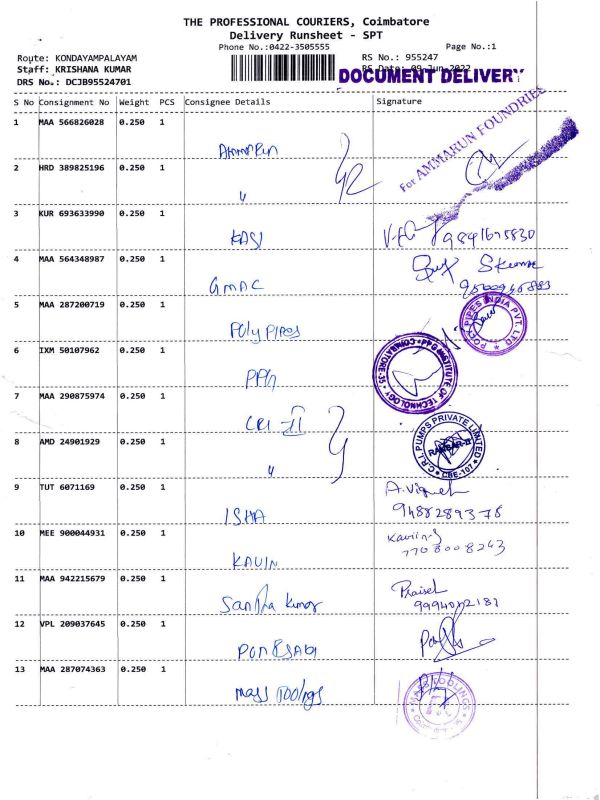 THE PROFESSIONAL COURIERS, Coimbatore
Delivery Runsheet - SPT
Phone No.:0422-3505555
Page No.:1
Route: KONDAYAMPALAYAM
RS No.: 955247
Staff: KRISHANA KUMAR
RS Date: 09-Jun-2022
DRS No.: DCJB95524701
DOCUMENT DELIVERY
S No Consignment No Weight PCS Consignee Details Signature
1 MAA 566826028 0.250 1
For AMMARUN FOUNDRIES
2 HRD 389825196 0.250 1 "
3 KUR 693633990 0.250 1 KASI
4 MAA 564348987 0.250 1 GMAC
5 MAA 287200719 0.250 1 Poly Pipes
POLY PIPES INDIA PVT. LTD
6 IXM 50107962 0.250 1 PPG
PPG INSTITUTE OF TECHNOLOGY COIMBATORE-35
7 MAA 290875974 0.250 1 CRI-II
8 AMD 24901929 0.250 1 "
C.R.I. PUMPS PRIVATE LIMITED
CBE-107
9 TUT 6071169 0.250 1 ISHA
10 MEE 900044931 0.250 1 KAVIN
7708008243
11 MAA 942215679 0.250 1 Santha Kumar
12 VPL 209037645 0.250 1
13 MAA 287074363 0.250 1 Mass Toolings
MASS TOOLINGS